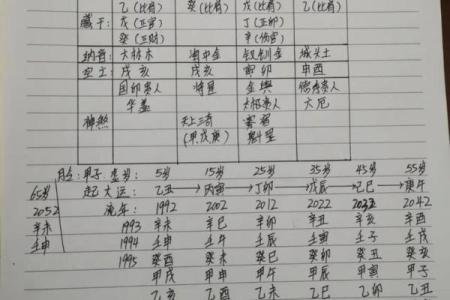 乙(比肩) 癸(比肩) 戊(比肩) 乙(比肩)
藏干: 戊(正官) 丁(正印)
癸(正财) 辛(伤官)
纳音: 大林木 海中金 钗钏金 城头土
空亡: 戌亥 戌亥 寅卯 申酉
国印贵人 将星 金舆 贵人
华盖 太极贵人 大厄
神煞 天上三奇 寡宿
(甲戊庚) 魁罡
甲子 虚岁: 5岁 15岁 25岁 35岁 45岁 55岁
65岁 起大运: 乙丑 →丙寅 →丁卯 →戊辰 →己巳 →庚午
2052 流年: 1992 2002 2012 2022 2032 2042
辛未 1993 辛未 辛巳 辛卯 辛丑 辛亥 辛酉
壬申 1994 壬申 壬午 壬辰 壬寅 壬子 壬戌
1995 癸酉 癸未 癸巳 癸卯 癸丑 癸亥
甲戌 甲申 甲午 甲辰 甲寅 甲子
乙亥 乙酉 乙未 乙巳 乙卯 乙丑